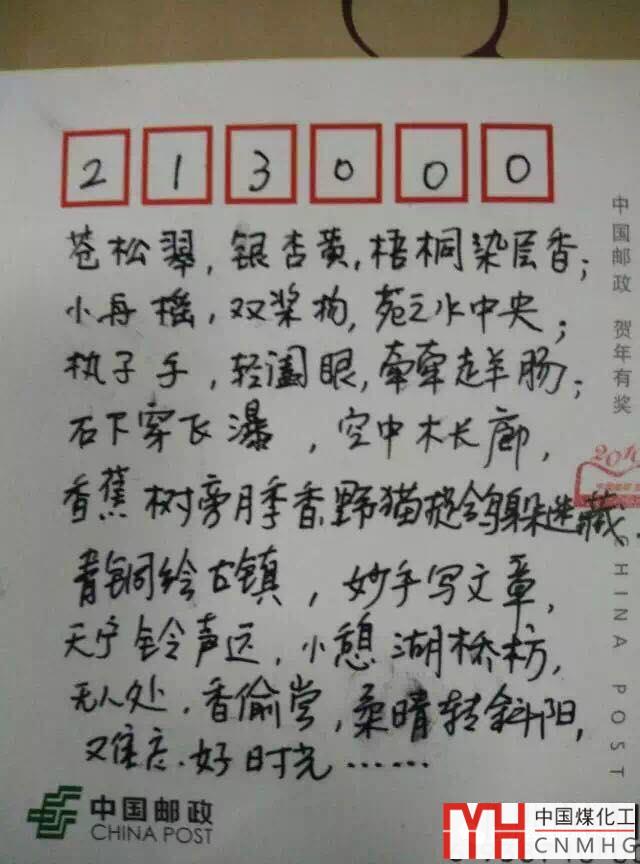 213000
苍松翠,银杏黄,梧桐染层香;
小舟摇,双桨拘,苑之水中央;
执子手,轻阖眼,牵牵走羊肠;
石下穿飞瀑,空中木长廊,
香蕉树旁月季香,野猫搅鸽躲迷藏.
青铜绘古镇,妙手写文章,
天宁铃声远,小憩湖桥枋,
无人处,香偷尝,柔晴转斜阳,
又难忘.好时光……
中国邮政 贺年有奖
2010
CHINA POST
中国邮政
CHINA POST
MH 中国煤化工
CNMHG